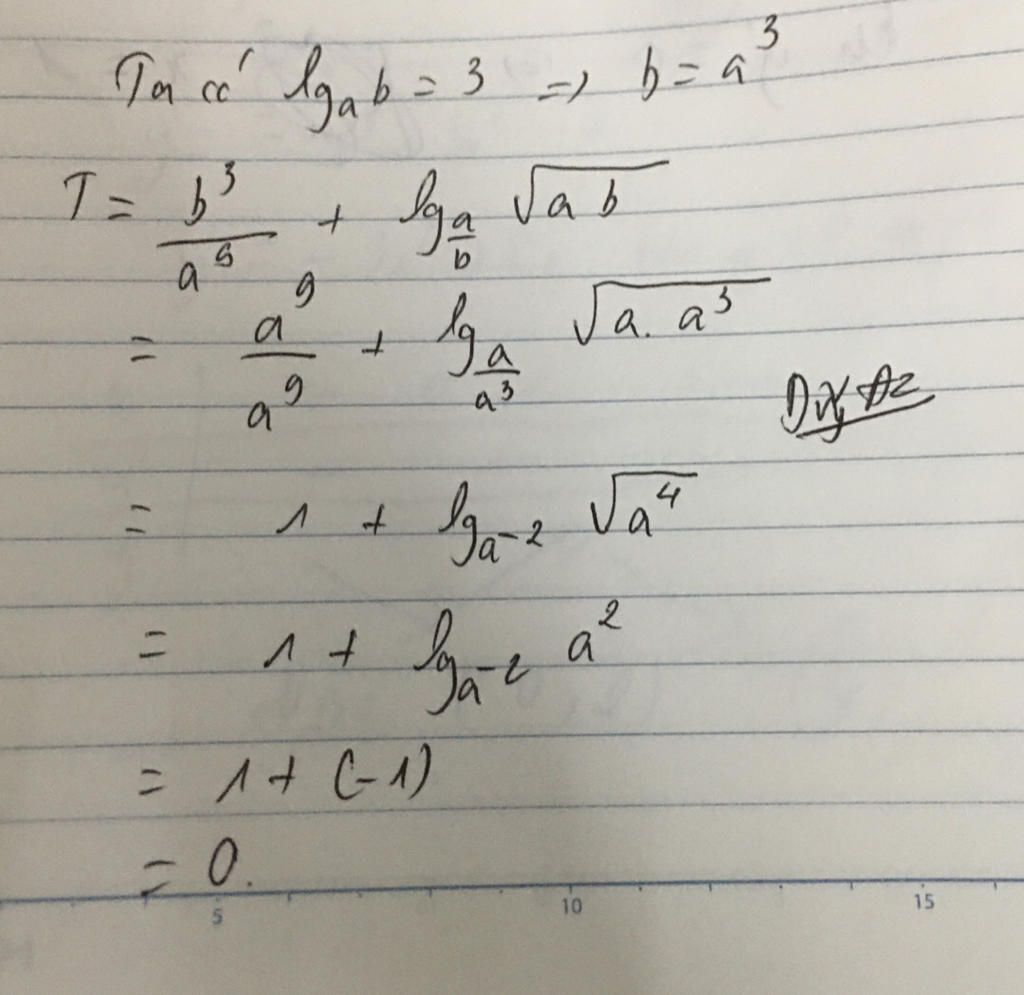 Ta có lg_a b = 3 => b = a^3
T = b^3/a^9 + lg_{a/b} √(a b)
= a^9/a^9 + lg_{a/a^3} √(a. a^3)
= 1 + lg_{a^{-2}} √(a^4)
= 1 + lg_{a^{-2}} a^2
= 1 + (-1)
= 0.
5 10 15